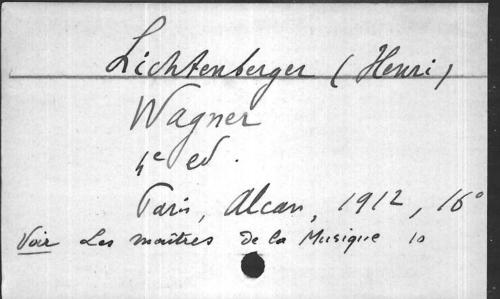 Lichtenberger (Henri)
Wagner
4e ed.
Paris, Alcan, 1912, 16°
Voir Les maîtres de la Musique 10